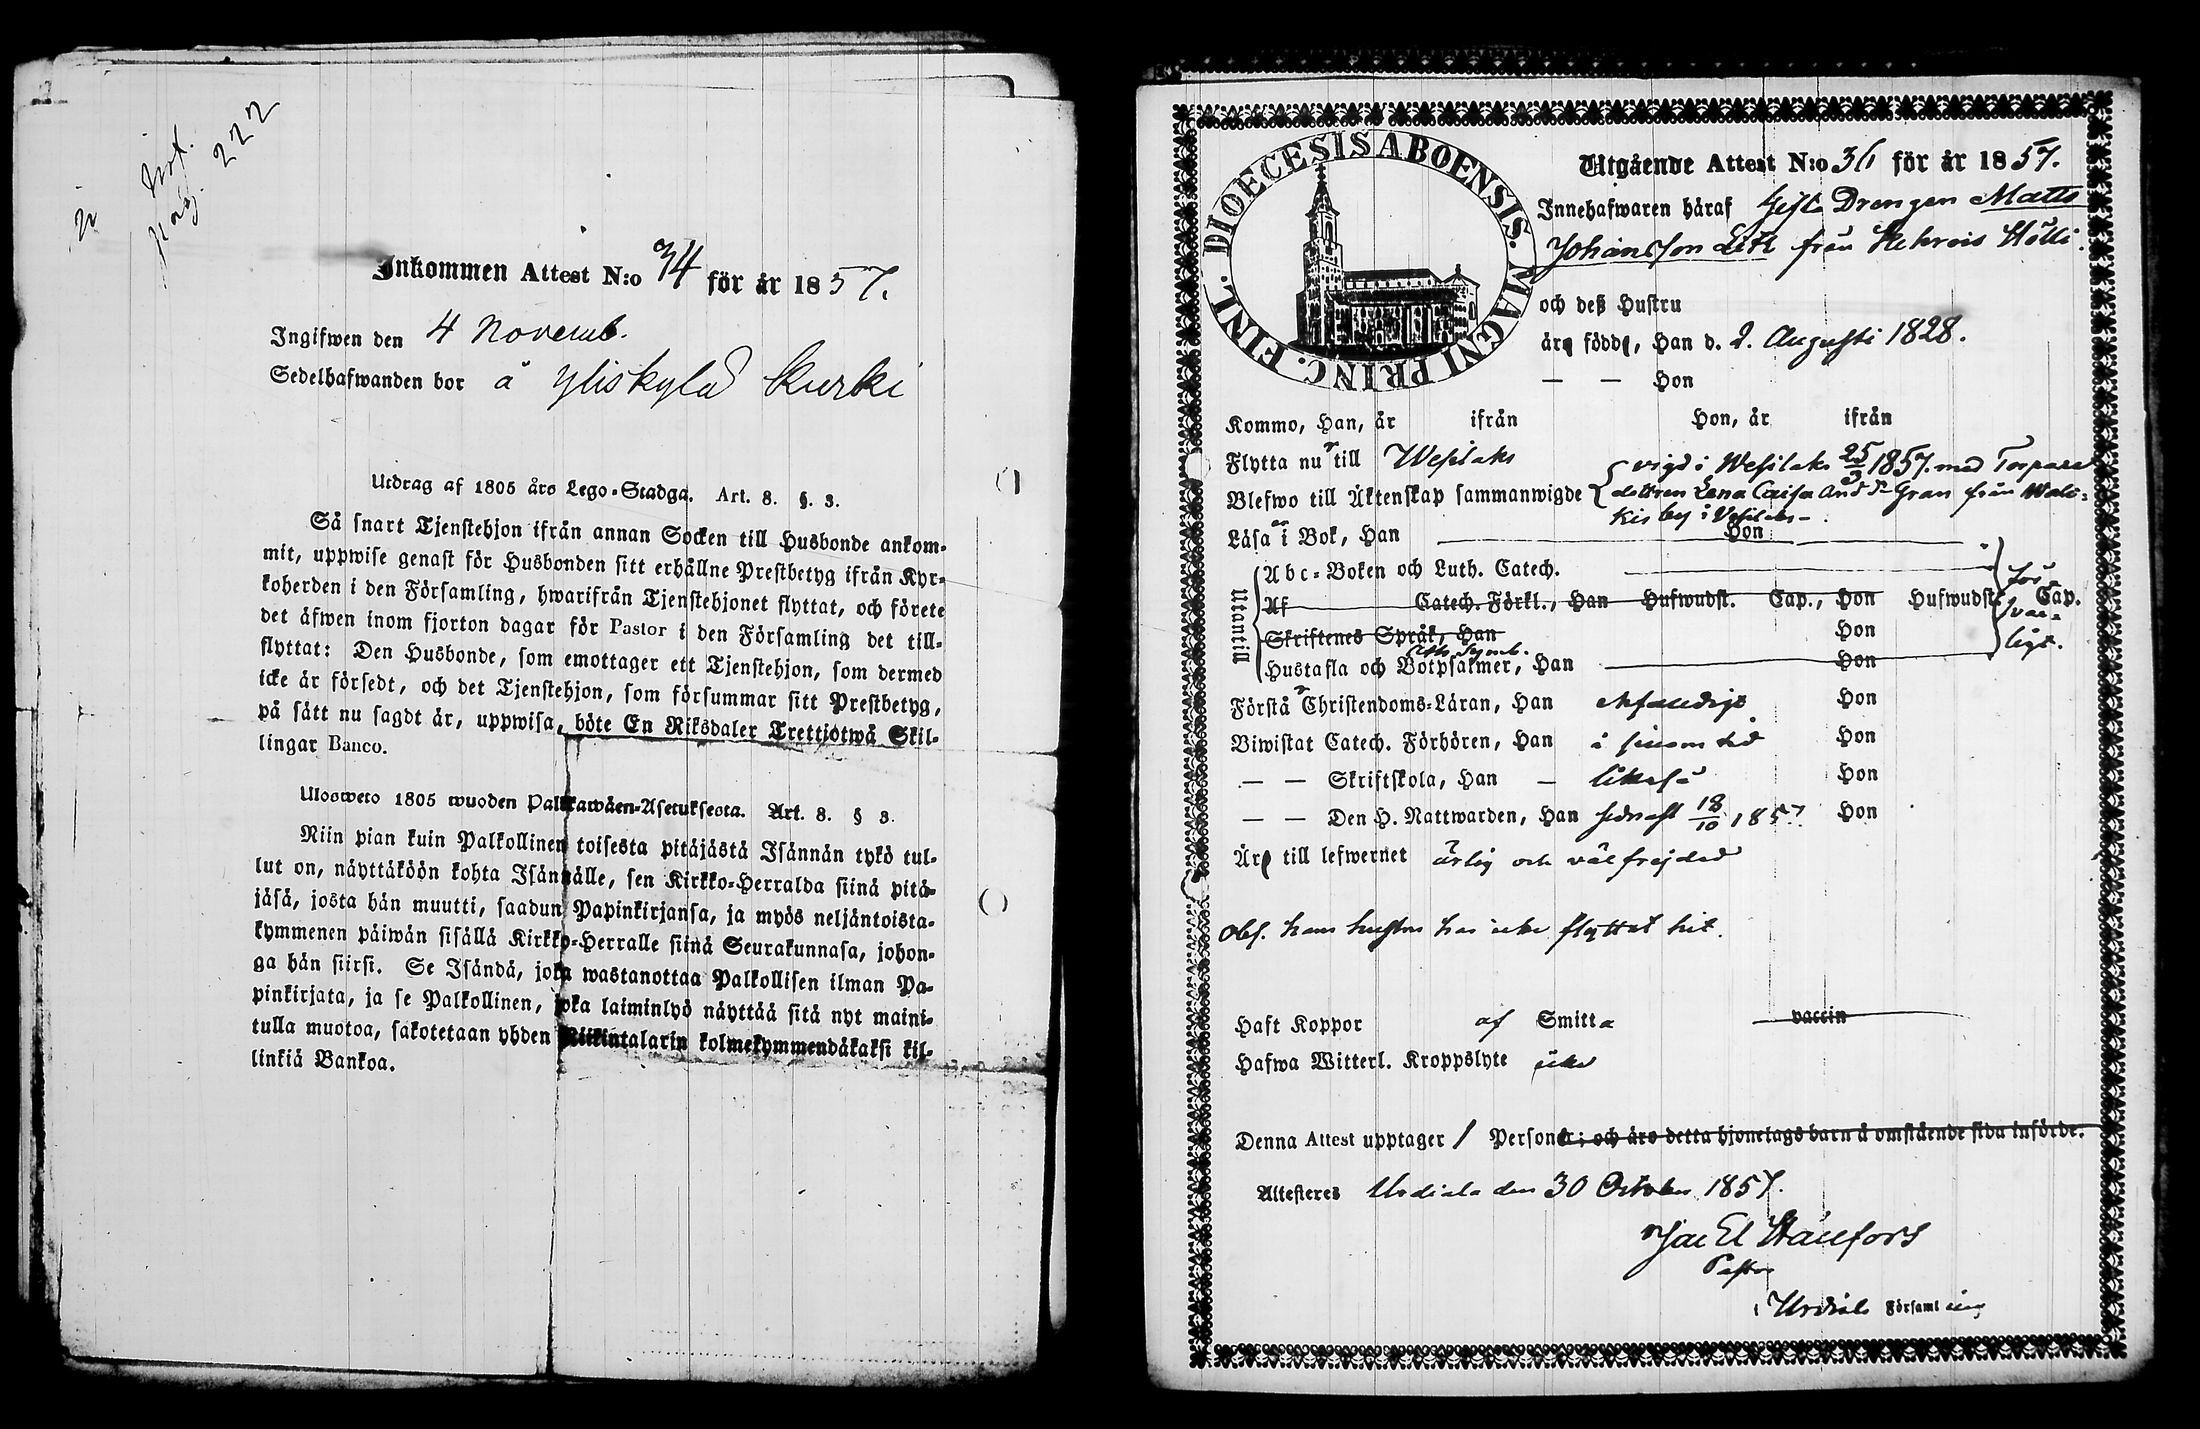 Not.
pag. 222
Inkommen Attest N:o 34 för år 1857.
Ingifwen den 4 Novemb.
Sedelhafwanden bor å Yliskylä Kurki
Utdrag af 1805 års Lego-Stadga. Art. 8. §. 3.
Så snart Tjenstehjon ifrån annan Socken till Husbonde ankom-
mit, uppwise genast för Husbonden sitt erhållne Prestbetyg ifrån Kyr-
koherden i den Församling, hwarifrån Tjenstehjonet flyttat, och förete
det äfwen inom fjorton dagar för Pastor i den Församling det till-
flyttat: Den Husbonde, som emottager ett Tjenstehjon, som dermed
icke är försedt, och det Tjenstehjon, som försummar sitt Prestbetyg,
på sätt nu sagdt är, uppwisa, böte En Riksdaler Trettjotwå Skil-
lingar Banco.
Ulosweto 1805 wuoden Palkkawäen-Asetuksesta. Art. 8. § 3.
Niin pian kuin Palkollinen toisesta pitäjästä Isännän tykö tul-
lut on, näyttäköön kohta Isännälle, sen Kirkko-Herralda siinä pitä-
jäsä, josta hän muutti, saadun Papinkirjansa, ja myös neljäntoista-
kymmenen päiwän sisällä Kirkko-Herralle siinä Seurakunnasa, johon-
ga hän siirsi. Se Isändä, joka wastanottaa Palkollisen ilman Pa-
pinkirjata, ja se Palkollinen, joka laiminlyö näyttää sitä nyt maini-
tulla muotoa, sakotetaan yhden Riikintalarin kolmekymmendäkaksi kil-
linkiä Bankoa.
DIOECESIS ABOENSIS. MAGNI PRINC. FINL.
Utgående Attest N:o 36 för år 1857.
Innehafwaren häraf Gifte Drengen Matts
Johansson Lätt från Kehrois Hölli.
och deß Hustru
äro födde, Han d. 2. Augusti 1828.
— — Hon
Kommo, Han, år ifrån Hon, år ifrån
Flytta nu till Wesilaks
vigd i Wesilaks 25/3 1857. med Torpare
Blefwo till Äktenskap sammanwigde dottren Lena Caisa And:dr Gran från
kis by i Vesilaks.
Läsa i Bok, Han Hon
Utantill
Abc-Boken och Luth. Catech.
Af Catech. Förkl., Han Hufwudst. Cap., Hon Hufwudst. Cap.
Skriftenes Språk, Han Hon
Ath. Symb.
Hustafla och Botpsalmer, Han Hon
för-
svar-
ligt.
Förstå Christendoms-Läran, Han enfaldigt Hon
Biwistat Catech. Förhören, Han i sinom tid Hon
— — Skriftskola, Han — likaså Hon
— — Den H. Nattwarden, Han sednast 18/10 1857. Hon
Äro till lefwernet ärlig och välfrejdad
Obs. hans hustru har icke flyttat hit.
Haft Koppor af Smitta vaccin
Hafwa Witterl. Kroppslyte icke
Denna Attest upptager 1 Personer; och äro detta hjonelags barn å omstående sida införde.
Attesteres Urdiala den 30 October 1857.
Pastor
i Urdiala Församling